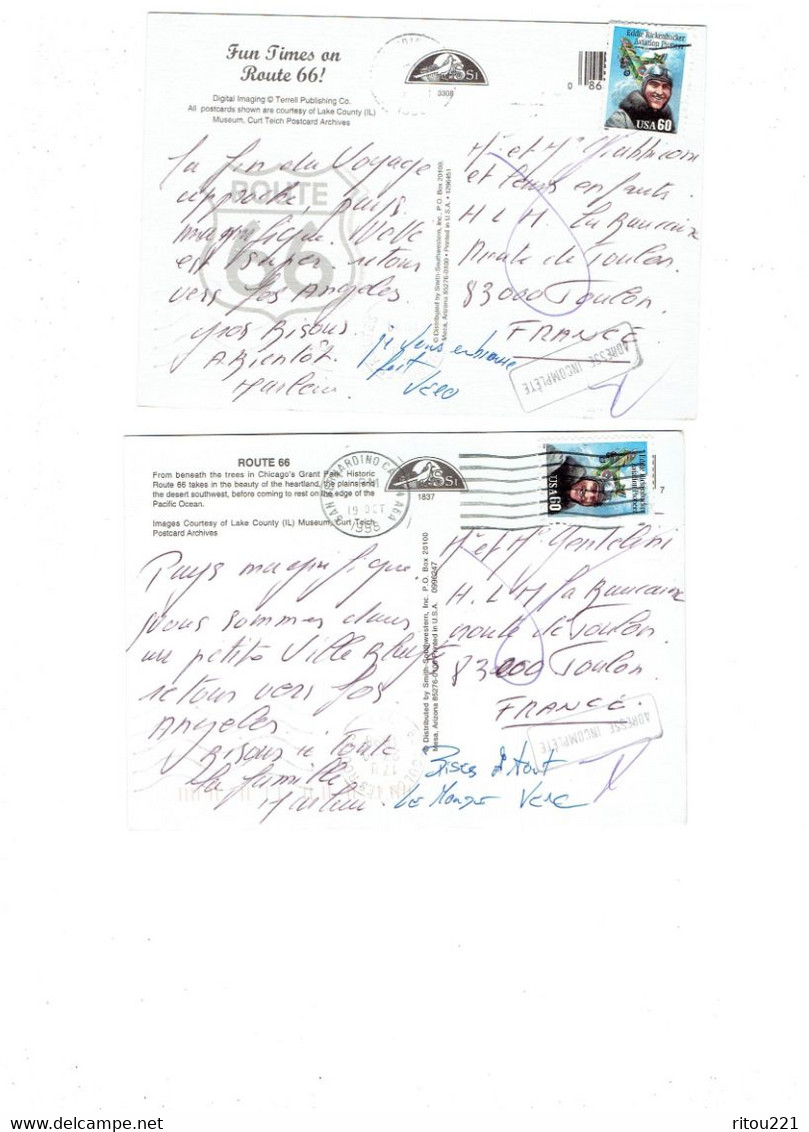 Fun Times on
Route 66!
Digital Imaging © Terrell Publishing Co.
All postcards shown are courtesy of Lake County (IL)
Museum, Curt Teich Postcard Archives
SSI
3308
0 86
Eddie Rickenbacker
Aviation Pioneer
USA 60
ROUTE
66
La fin du Voyage
approche, pays
magnifique.
est super retour
vers Los Angeles
gros Bisous
A Bientôt.
je vous embrasse
fort Vero
© Distributed by Smith-Southwestern, Inc. P.O. Box 20100
Mesa, Arizona 85276-0100 • Printed in U.S.A.
Mr et Me
et leurs enfants.
H L M. La Beaucaire
Route de Toulon.
83000 Toulon.
FRANCE.
ADRESSE INCOMPLÈTE
ROUTE 66
From beneath the trees in Chicago's Grant Park, Historic
Route 66 takes in the beauty of the heartland, the plains and
the desert southwest, before coming to rest on the edge of the
Pacific Ocean.
Images Courtesy of Lake County (IL) Museum, Curt Teich
Postcard Archives
SAN BERNARDINO CA
19 OCT
1998
SSI
1837
Eddie Rickenbacker
Aviation Pioneer
USA 60
7
Pays magnifique.
nous sommes dans
une petite Ville
retour vers Los
Angeles.
Bisous à Toute
la famille
Bises à tout
Le Monde Vero
© Distributed by Smith-Southwestern, Inc. P.O. Box 20100
Mesa, Arizona 85276-0100 Printed in U.S.A. 0996247
Mr et Me
H. L M La Beaucaire
route de Toulon.
83000 Toulon.
FRANCE.
ADRESSE INCOMPLÈTE
ritou221